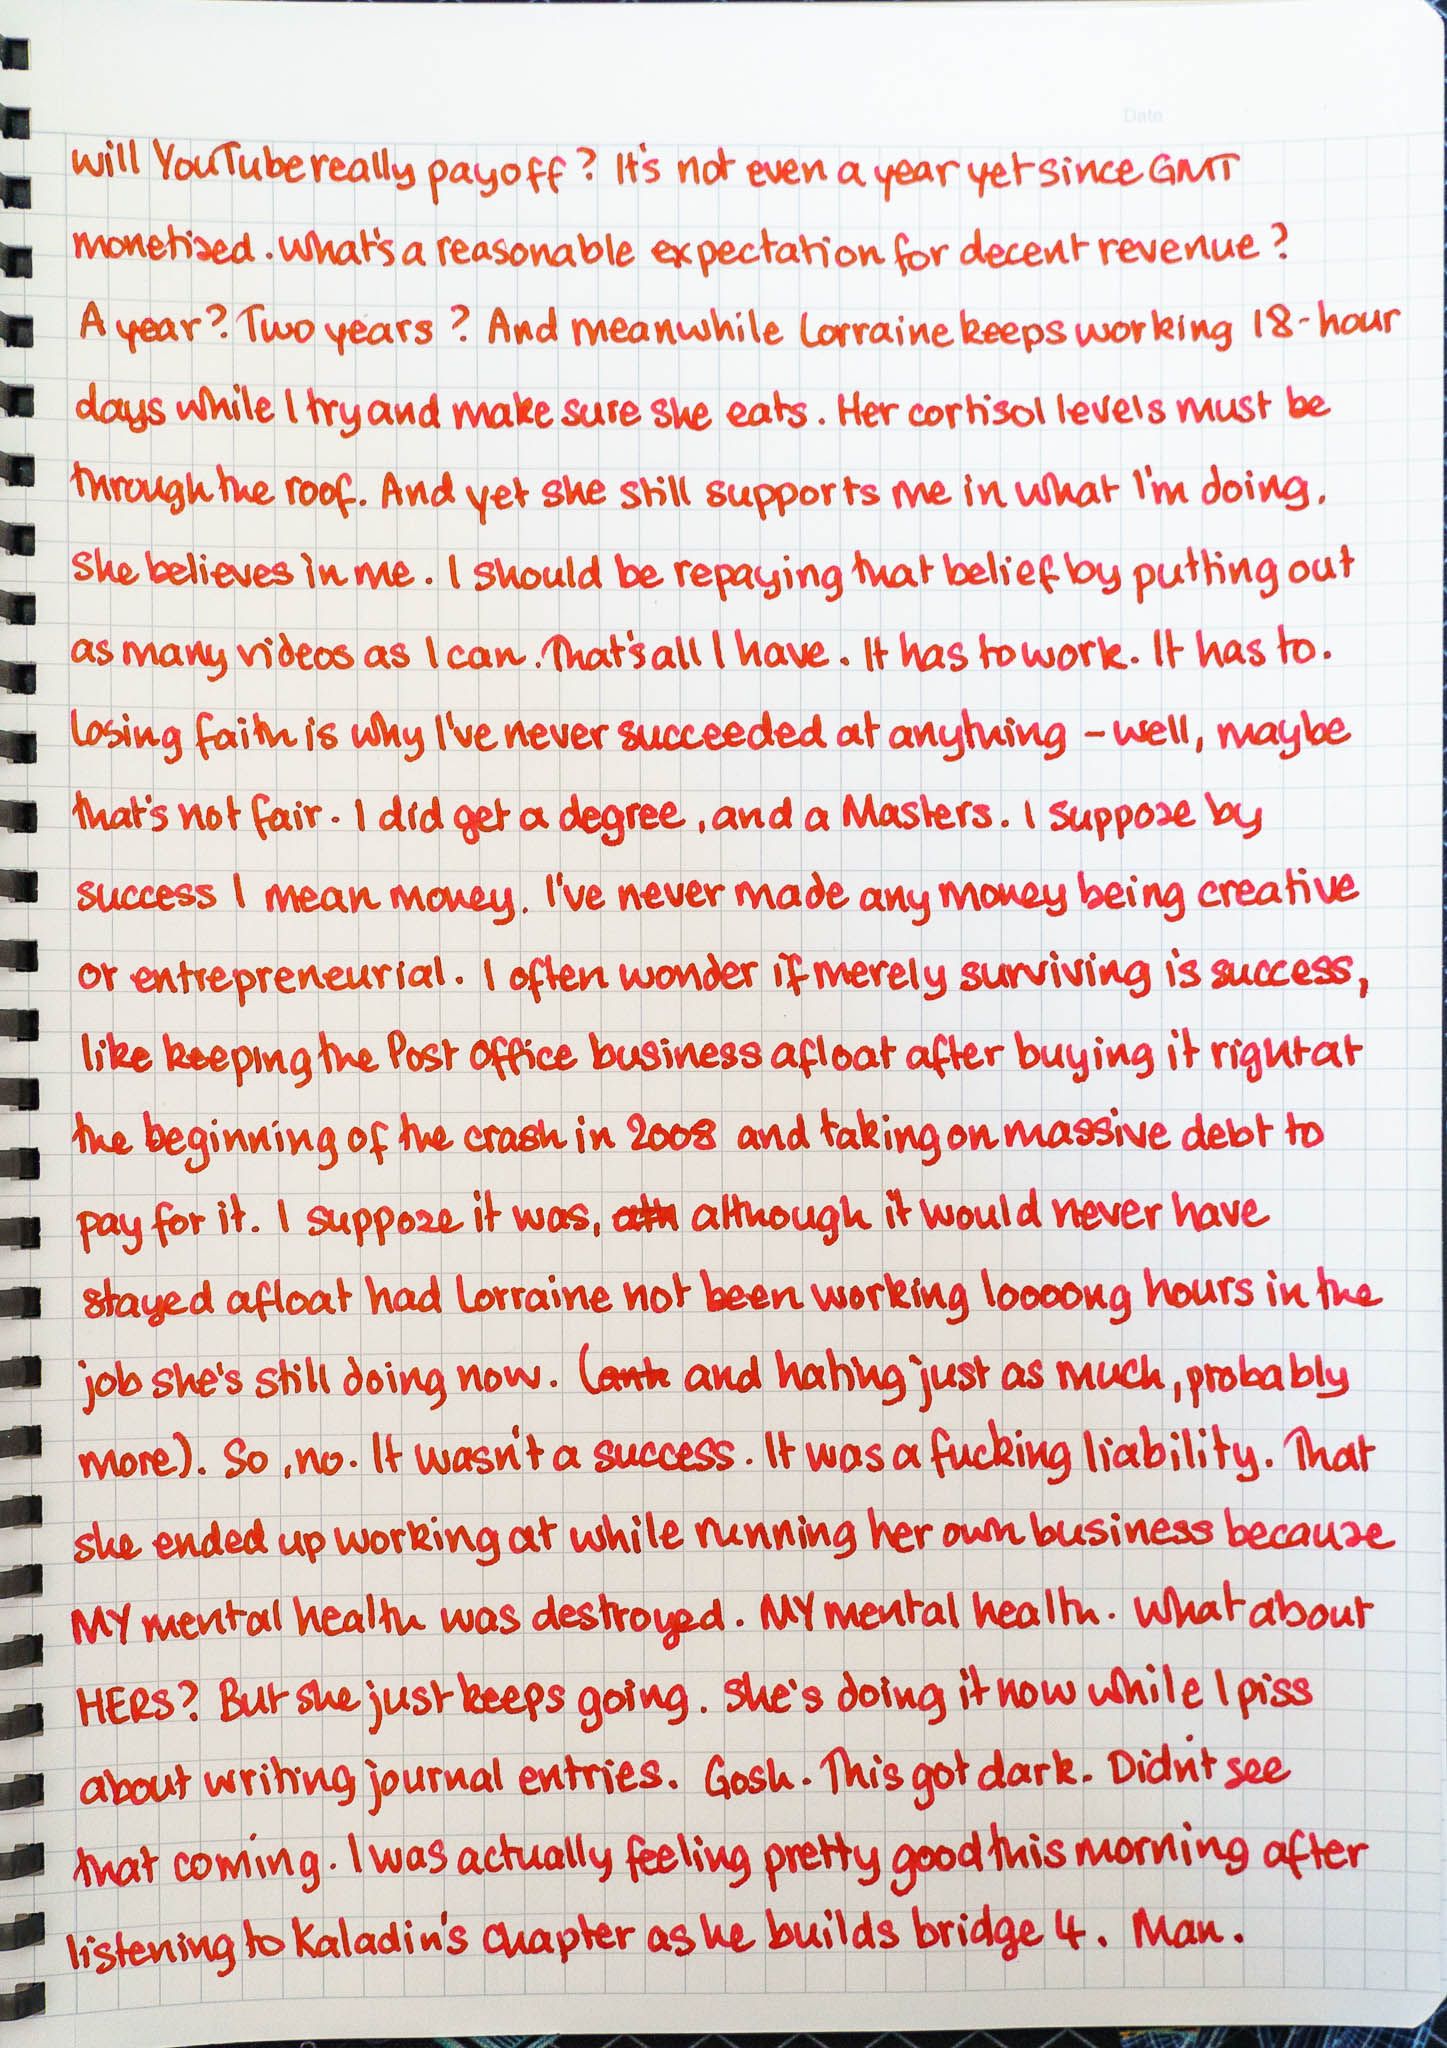 Date
will YouTube really payoff? It's not even a year yet since GMT
monetised. What's a reasonable expectation for decent revenue?
A year? Two years? And meanwhile Lorraine keeps working 18-hour
days while I try and make sure she eats. Her cortisol levels must be
through the roof. And yet she still supports me in what I'm doing.
She believes in me. I should be repaying that belief by putting out
as many videos as I can. That's all I have. It has to work. It has to.
Losing faith is why I've never succeeded at anything - well, maybe
that's not fair. I did get a degree, and a Masters. I suppose by
success I mean money. I've never made any money being creative
or entrepreneurial. I often wonder if merely surviving is success,
like keeping the Post Office business afloat after buying it right at
the beginning of the crash in 2008 and taking on massive debt to
pay for it. I suppose it was, although it would never have
stayed afloat had Lorraine not been working looooong hours in the
job she's still doing now. (and hating just as much, probably
more). So, no. It wasn't a success. It was a fucking liability. That
she ended up working at while running her own business because
MY mental health was destroyed. MY mental health. What about
HERS? But she just keeps going. She's doing it now while I piss
about writing journal entries. Gosh. This got dark. Didn't see
that coming. I was actually feeling pretty good this morning after
listening to Kaladin's chapter as he builds bridge 4. Man.